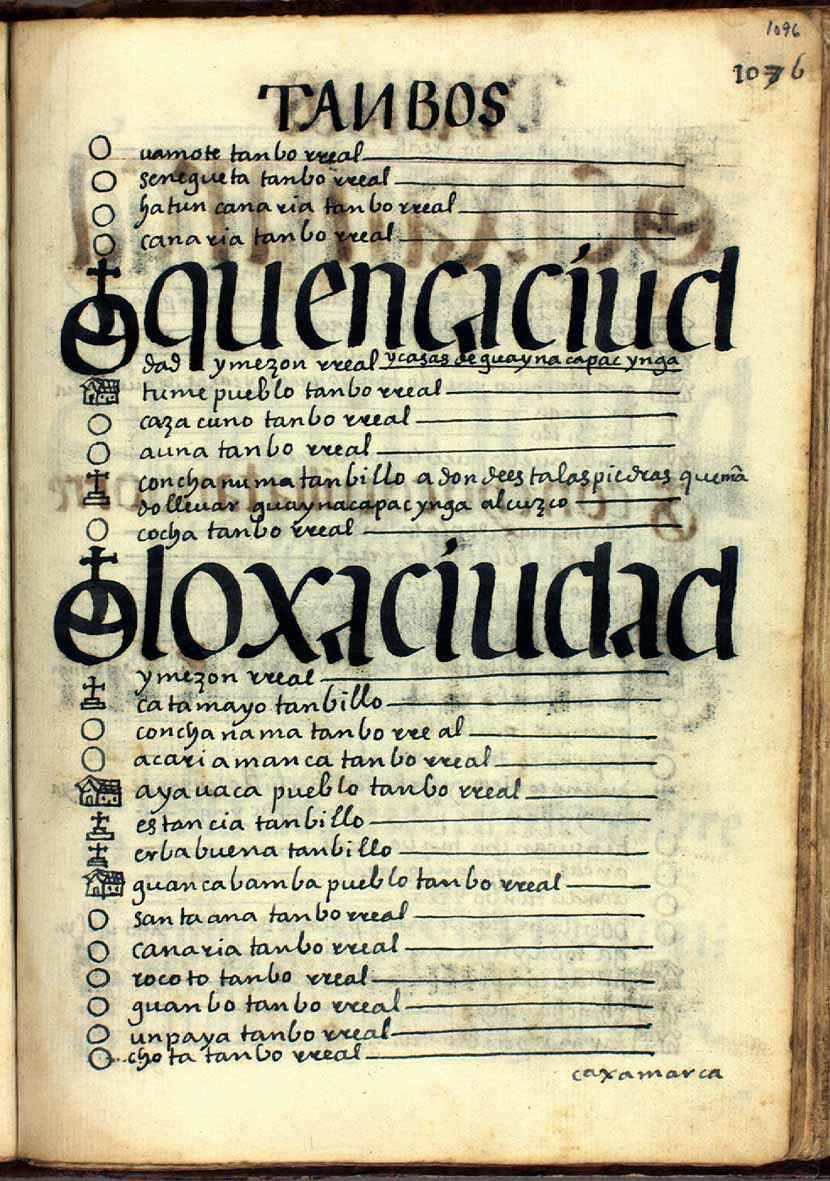 1096
1076
TANBOS
uamote tanbo rreal
senegueta tanbo rreal
hatun canaria tanbo rreal
canaria tanbo rreal
quencaciud
dad y mezon rreal y casas de guayna capac ynga
tume pueblo tanbo rreal
caza cuno tanbo rreal
auna tanbo rreal
concha numa tanbillo a don dees ta las piedras que mã
do lleuar guayna capac ynga al cuzco
cocha tanbo rreal
loxa ciudad
y mezon rreal
catamayo tanbillo
conchanama tanbo rreal
acariamanca tanbo rreal
ayauaca pueblo tanbo rreal
estancia tanbillo
erbabuena tanbillo
guancabamba pueblo tanbo rreal
santa ana tanbo rreal
canaria tanbo rreal
rocoto tanbo rreal
guanbo tanbo rreal
unpaya tanbo rreal
chota tanbo rreal
caxamarca